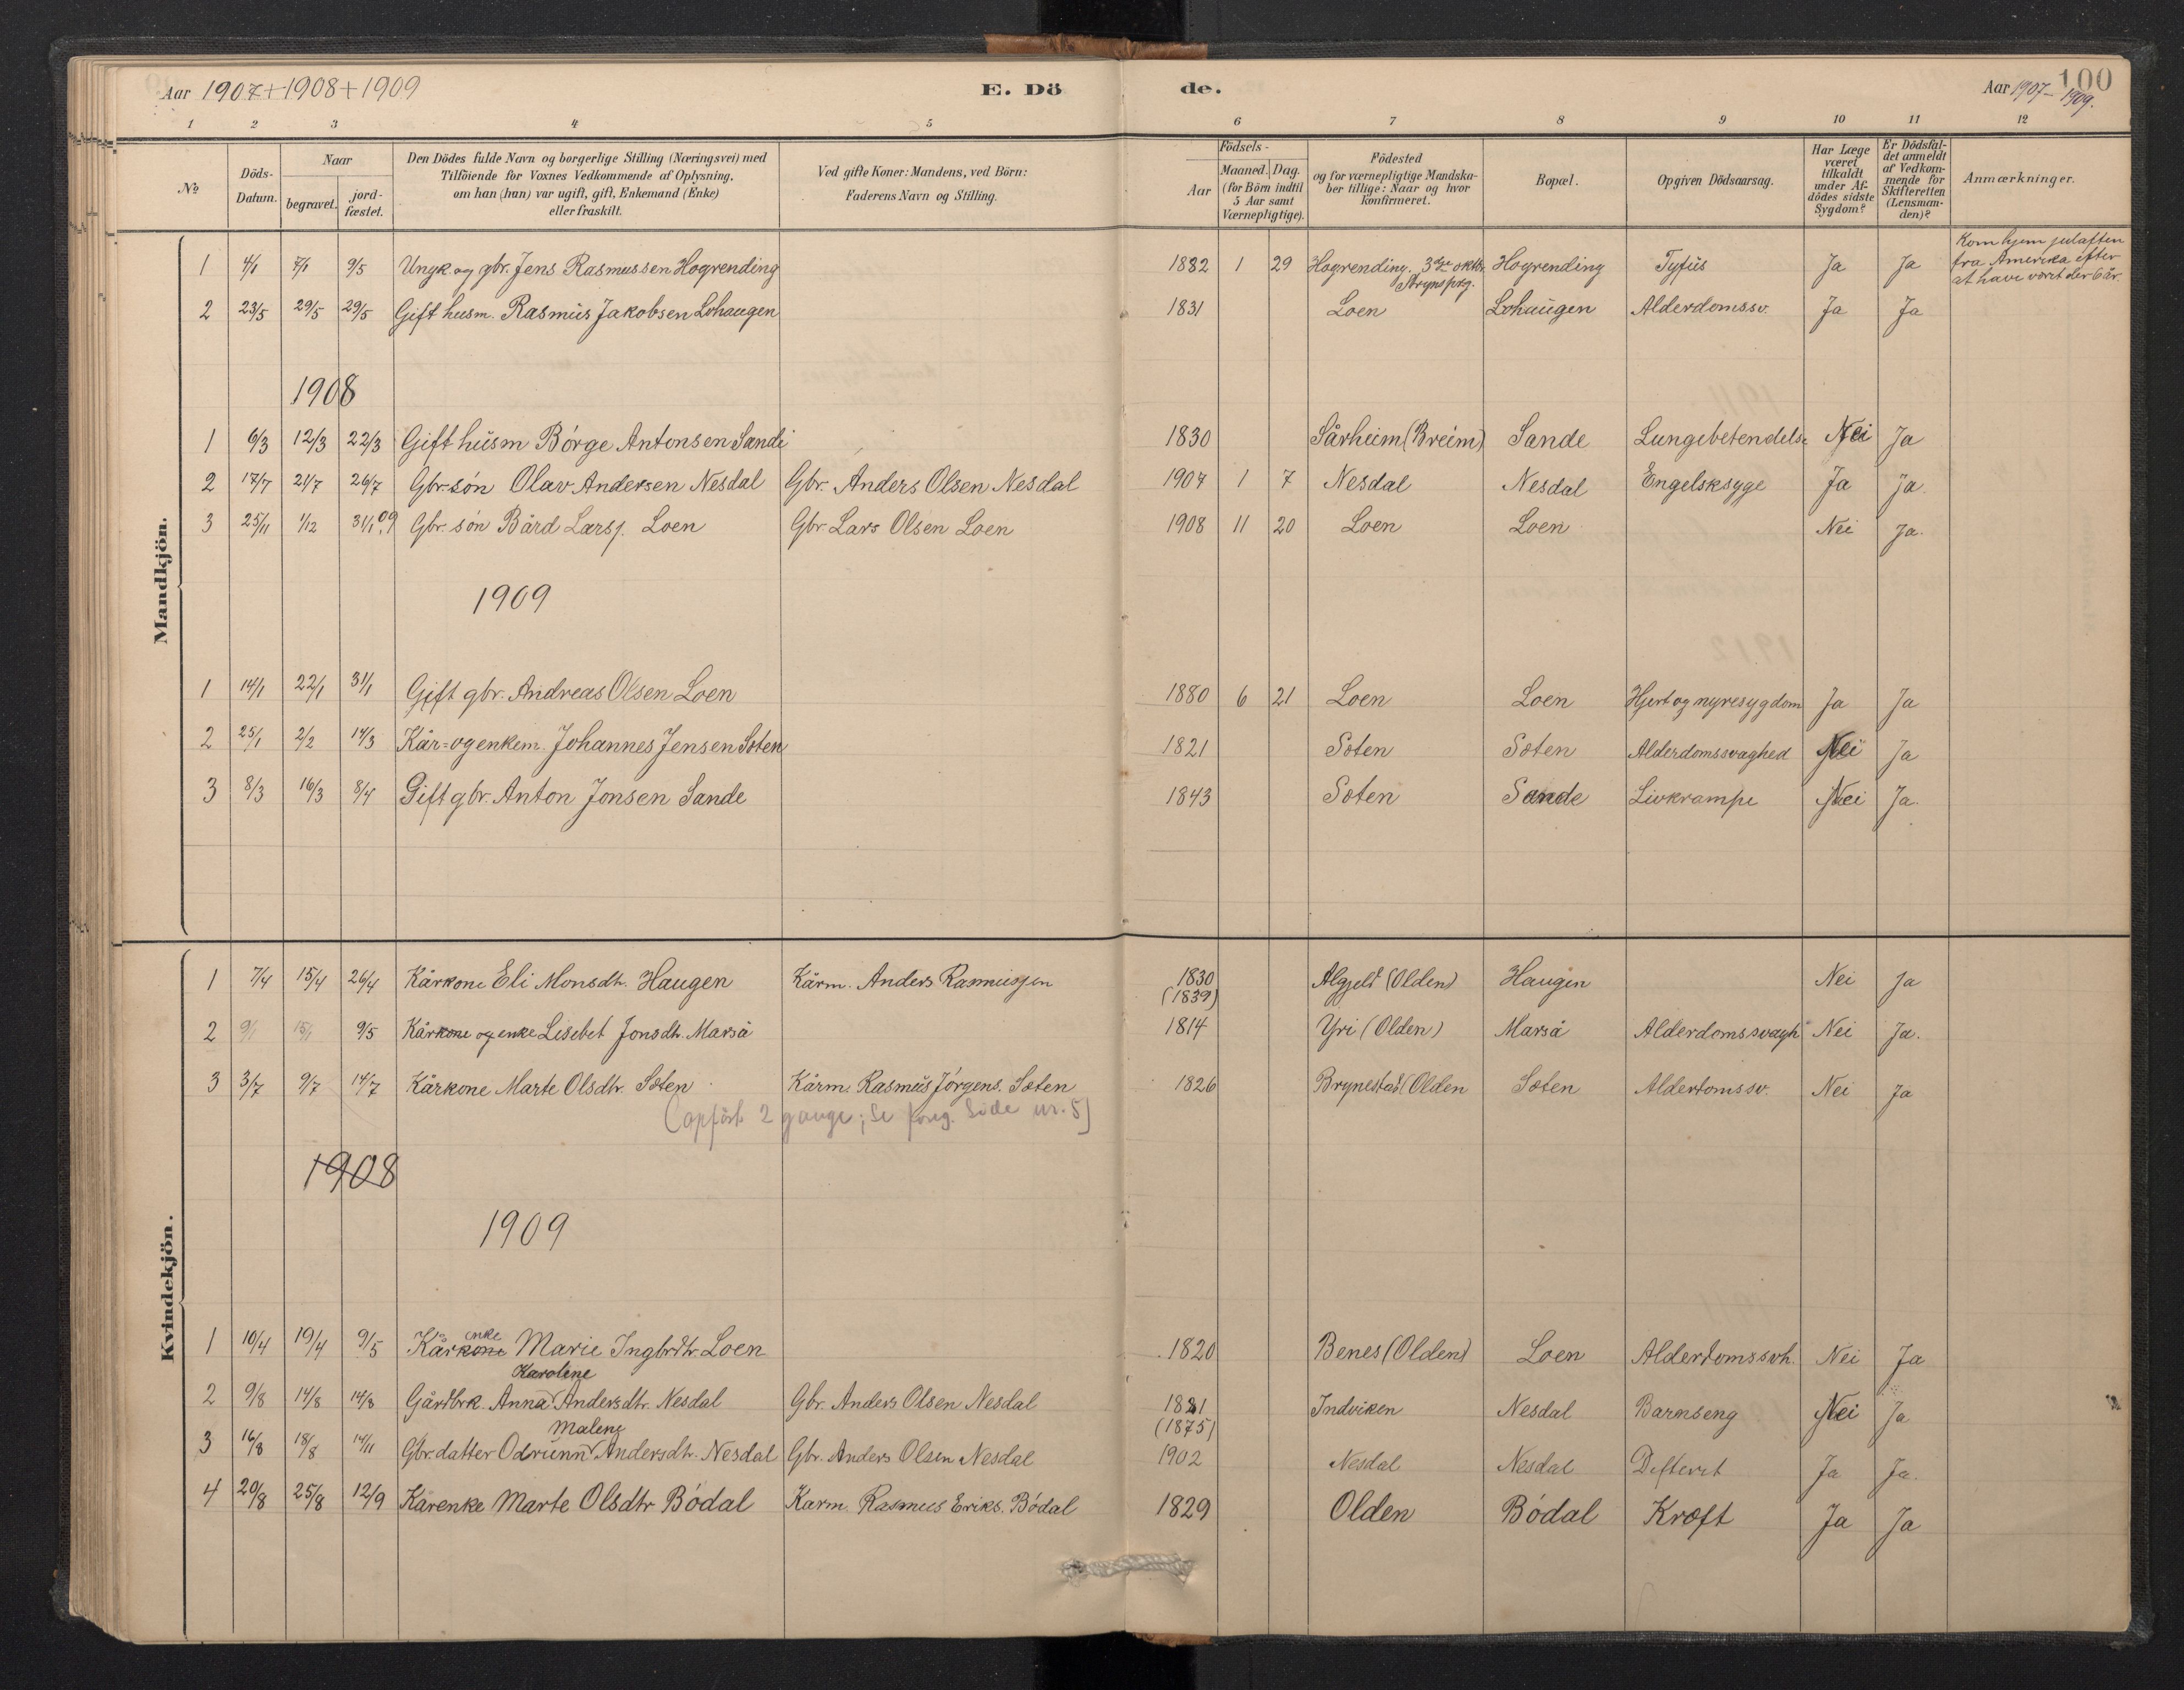 Aar 1907+1908+1909 E. Dö de. Aar 1907–1909. 100
1 2 3 4 5 6 7 8 9 10 11 12
No
Döds-Datum.
Naar
begravet.
jord-fæstet.
Den Dödes fulde Navn og borgerlige Stilling (Næringsvei) med
Tilföiende for Voxnes Vedkommende af Oplysning,
om han (hun) var ugift, gift, Enkemand (Enke)
eller fraskilt.
Ved gifte Koner: Mandens, ved Börn:
Faderens Navn og Stilling.
Födsels-
Aar
Maaned. Dag.
(for Börn indtil
5 Aar samt
Værnepligtige).
Födested
og for værnepligtige Mandska-
ber tillige: Naar og hvor
Konfirmeret.
Bopæl.
Opgiven Dödsaarsag.
Har Læge
været
tilkaldt
under Af-
dödes sidste
Sygdom?
Er Dödsfal-
det anmeldt
af Vedkom-
mende for
Skifteretten
(Lensman-
den)?
Anmærkninger.
Mandkjön.
1 4/1 7/1 9/5 Ungk. og gbr. Jens Rasmussen Hogrending 1882 1 29 Hogrending. 3die okthr. Strynsprg. Hogrending Tyfüs Ja Ja Kom hjem julaften
fra Amerika efter
at have vært der 6 år.
2 23/5 29/5 29/5 Gift husm. Rasmüs Jakobsen Lohaugen 1831 Loen Lohaügen Alderdomssv. Ja Ja
1908
1 6/3 12/3 22/3 Gift hüsm Börge Antonsen Sande 1830 Sårheim (Breim) Sande Lungebetendelse Nei Ja
2 17/7 21/7 26/7 Gbr. sön Olav Andersen Nesdal Gbr. Anders Olsen Nesdal 1907 1 7 Nesdal Nesdal Engelsksyge Ja Ja.
3 25/11 1/12 31/1 09 Gbr. sön Bård Larss. Loen Gbr. Lars Olsen Loen 1908 11 20 Loen Loen Nei Ja.
1909
1 14/1 22/1 31/1 Gift gbr. Andreas Olsen Loen 1880 6 21 Loen Loen Hjert og nyresygdom Ja Ja
2 25/1 2/2 14/3 Kår= og enkem. Johannes Jensen Sæten 1821 Sæten Sæten Alderdomssvaghed Nei Ja
3 8/3 16/3 8/4 Gift gbr. Anton Jonsen Sande 1843 Sæten Sande Livkrampe Nei Ja.
Kvindekjön.
1 7/4 15/4 26/4 Kårkone Eli Monsdtr. Haugen Kårm. Anders Rasmussen 1830 (1839) Algjeld (Olden) Haugen Nei Ja
2 9/5 Kårkone og enke Lisebet Jonsdtr. Marså 1814 Yri (Olden) Marså Alderdomssvagh Nei Ja.
3 3/7 9/7 14/7 Kårkone Marte Olsdtr. Sæten Kårm. Rasmüs Jörgens. Sæten 1826 Brynestad (Olden Sæten Alderdomssv. Nei Ja
(opført 2 gange; se forrg. Side nr. 5)
1908
1909
1 10/4 19/4 9/5 Kårkone enke Marie Ingbrdtr. Loen 1820 Benes (Olden) Loen Alderdomssvh. Nei Ja
2 9/8 14/8 14/8 Gårdbrk. Anna Karoline Andersdtr. Nesdal Gbr. Anders Olsen Nesdal 1881 (1875) Indviken Nesdal Barnseng Nei Ja
3 16/8 18/8 14/11 Gbr. datter Odrünn Malene Andersdtr. Nesdal Gbr. Anders Olsen Nesdal 1902 Nesdal Nesdal Difterit Ja Ja.
4 20/8 25/8 12/9 Kårenke Marte Olsdtr Bödal Kårm. Rasmus Eriks. Bödal 1829 Olden Bödal Kræft Ja Ja